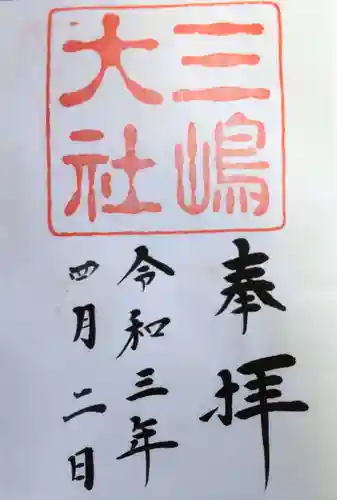 三嶋
大社
奉拝
令和三年
四月二日